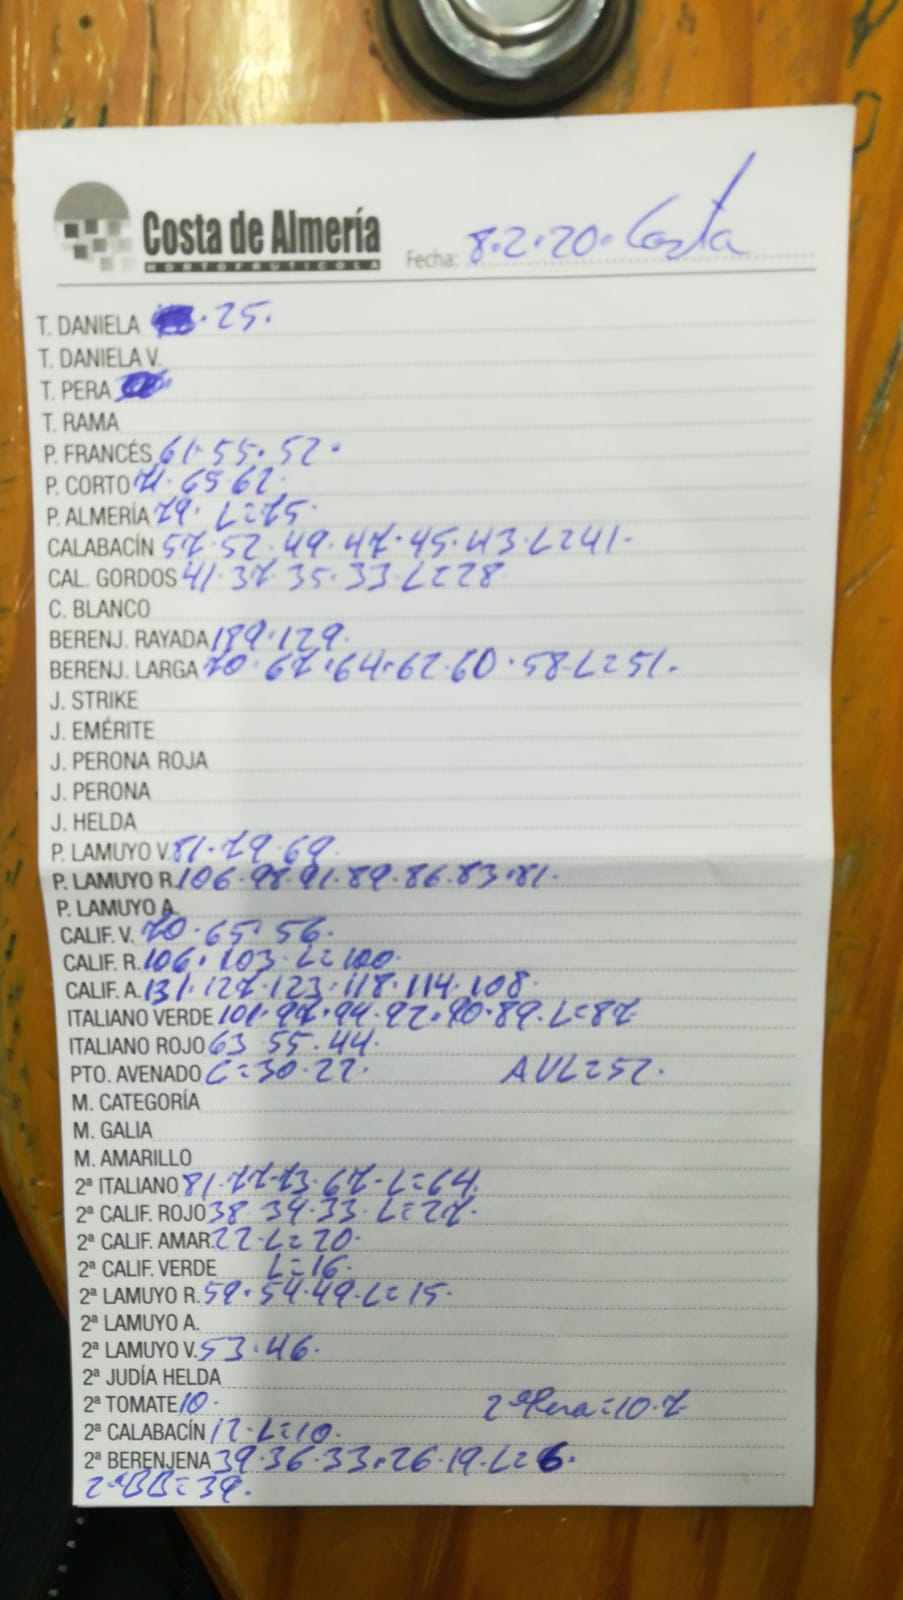 Costa de Almería
HORTOFRUTICOLA
Fecha: 8.2.20. Costa
T. DANIELA .25.
T. DANIELA V.
T. PERA
T. RAMA
P. FRANCÉS 61.55.52.
P. CORTO 71.65.62.
P. ALMERÍA 79. L=75.
CALABACÍN 57.52.49.47.45.43.L=41.
CAL. GORDOS 41.37.35.33.L=28
C. BLANCO
BERENJ. RAYADA 189.129.
BERENJ. LARGA 70.67.64.62.60.58.L=51.
J. STRIKE
J. EMÉRITE
J. PERONA ROJA
J. PERONA
J. HELDA
P. LAMUYO V. 81.79.69.
P. LAMUYO R. 106.98.91.89.86.83.81.
P. LAMUYO A.
CALIF. V. 70.65.56.
CALIF. R. 106.103.L=100.
CALIF. A. 131.127.123.118.114.108.
ITALIANO VERDE 101.97.94.92.90.89.L=87
ITALIANO ROJO 63.55.44.
PTO. AVENADO C=30.22. AVL=52.
M. CATEGORÍA
M. GALIA
M. AMARILLO
2ª ITALIANO 81.77.73.67.L=64.
2ª CALIF. ROJO 38.34.33.L=27.
2ª CALIF. AMAR. 22.L=20.
2ª CALIF. VERDE L=16.
2ª LAMUYO R. 59.54.49.L=15.
2ª LAMUYO A.
2ª LAMUYO V. 53.46.
2ª JUDÍA HELDA
2ª TOMATE 10. 2ªPera=10.7
2ª CALABACÍN 12.L=10.
2ª BERENJENA 39.36.33.26.19.L=6.
2ªBB=39.